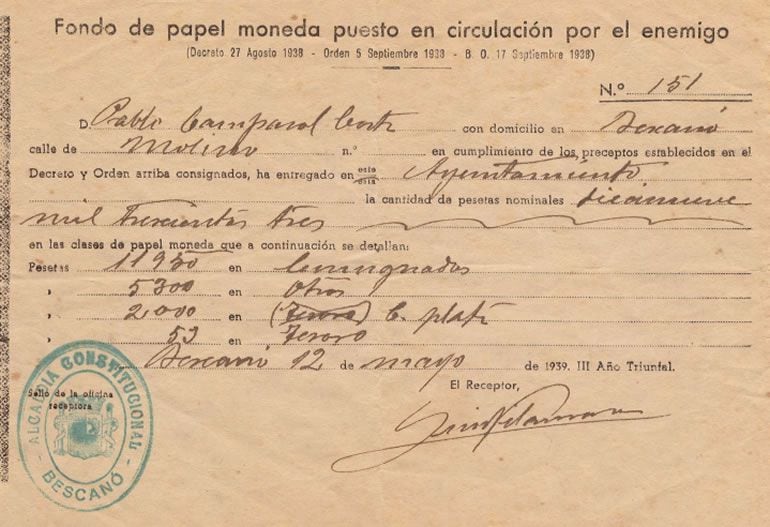 Fondo de papel moneda puesto en circulación por el enemigo
(Decreto 27 Agosto 1938 - Orden 5 Septiembre 1938 - B. O. 17 Septiembre 1938)
N.º 151
D. Pablo Camparol con domicilio en Bescanó
calle de Molino n.º en cumplimiento de los preceptos establecidos en el
Decreto y Orden arriba consignados, ha entregado en este esta Ayuntamiento
la cantidad de pesetas nominales diecinueve
mil trescientas tres
en las clases de papel moneda que a continuación se detallan:
Pesetas 11950 en
» 5300 en Otros
» 2,000 en (Tesoro) C. plata
» 53 en Tesoro
Bescanó 12 de mayo de 1939. III Año Triunfal.
El Receptor,
Sello de la oficina
receptora
ALCALDIA CONSTITUCIONAL
- BESCANÓ -